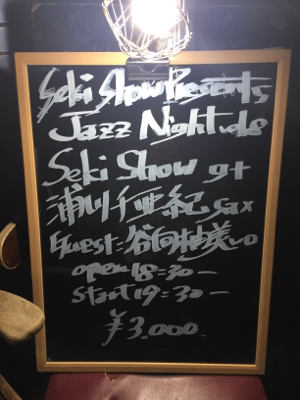 Seki Show Presents
Jazz Night vol8
Seki Show gt
浦川千亜紀 sax
Guest=谷向柚美 vo
open 18=30—
Start 19=30—
¥3.000.